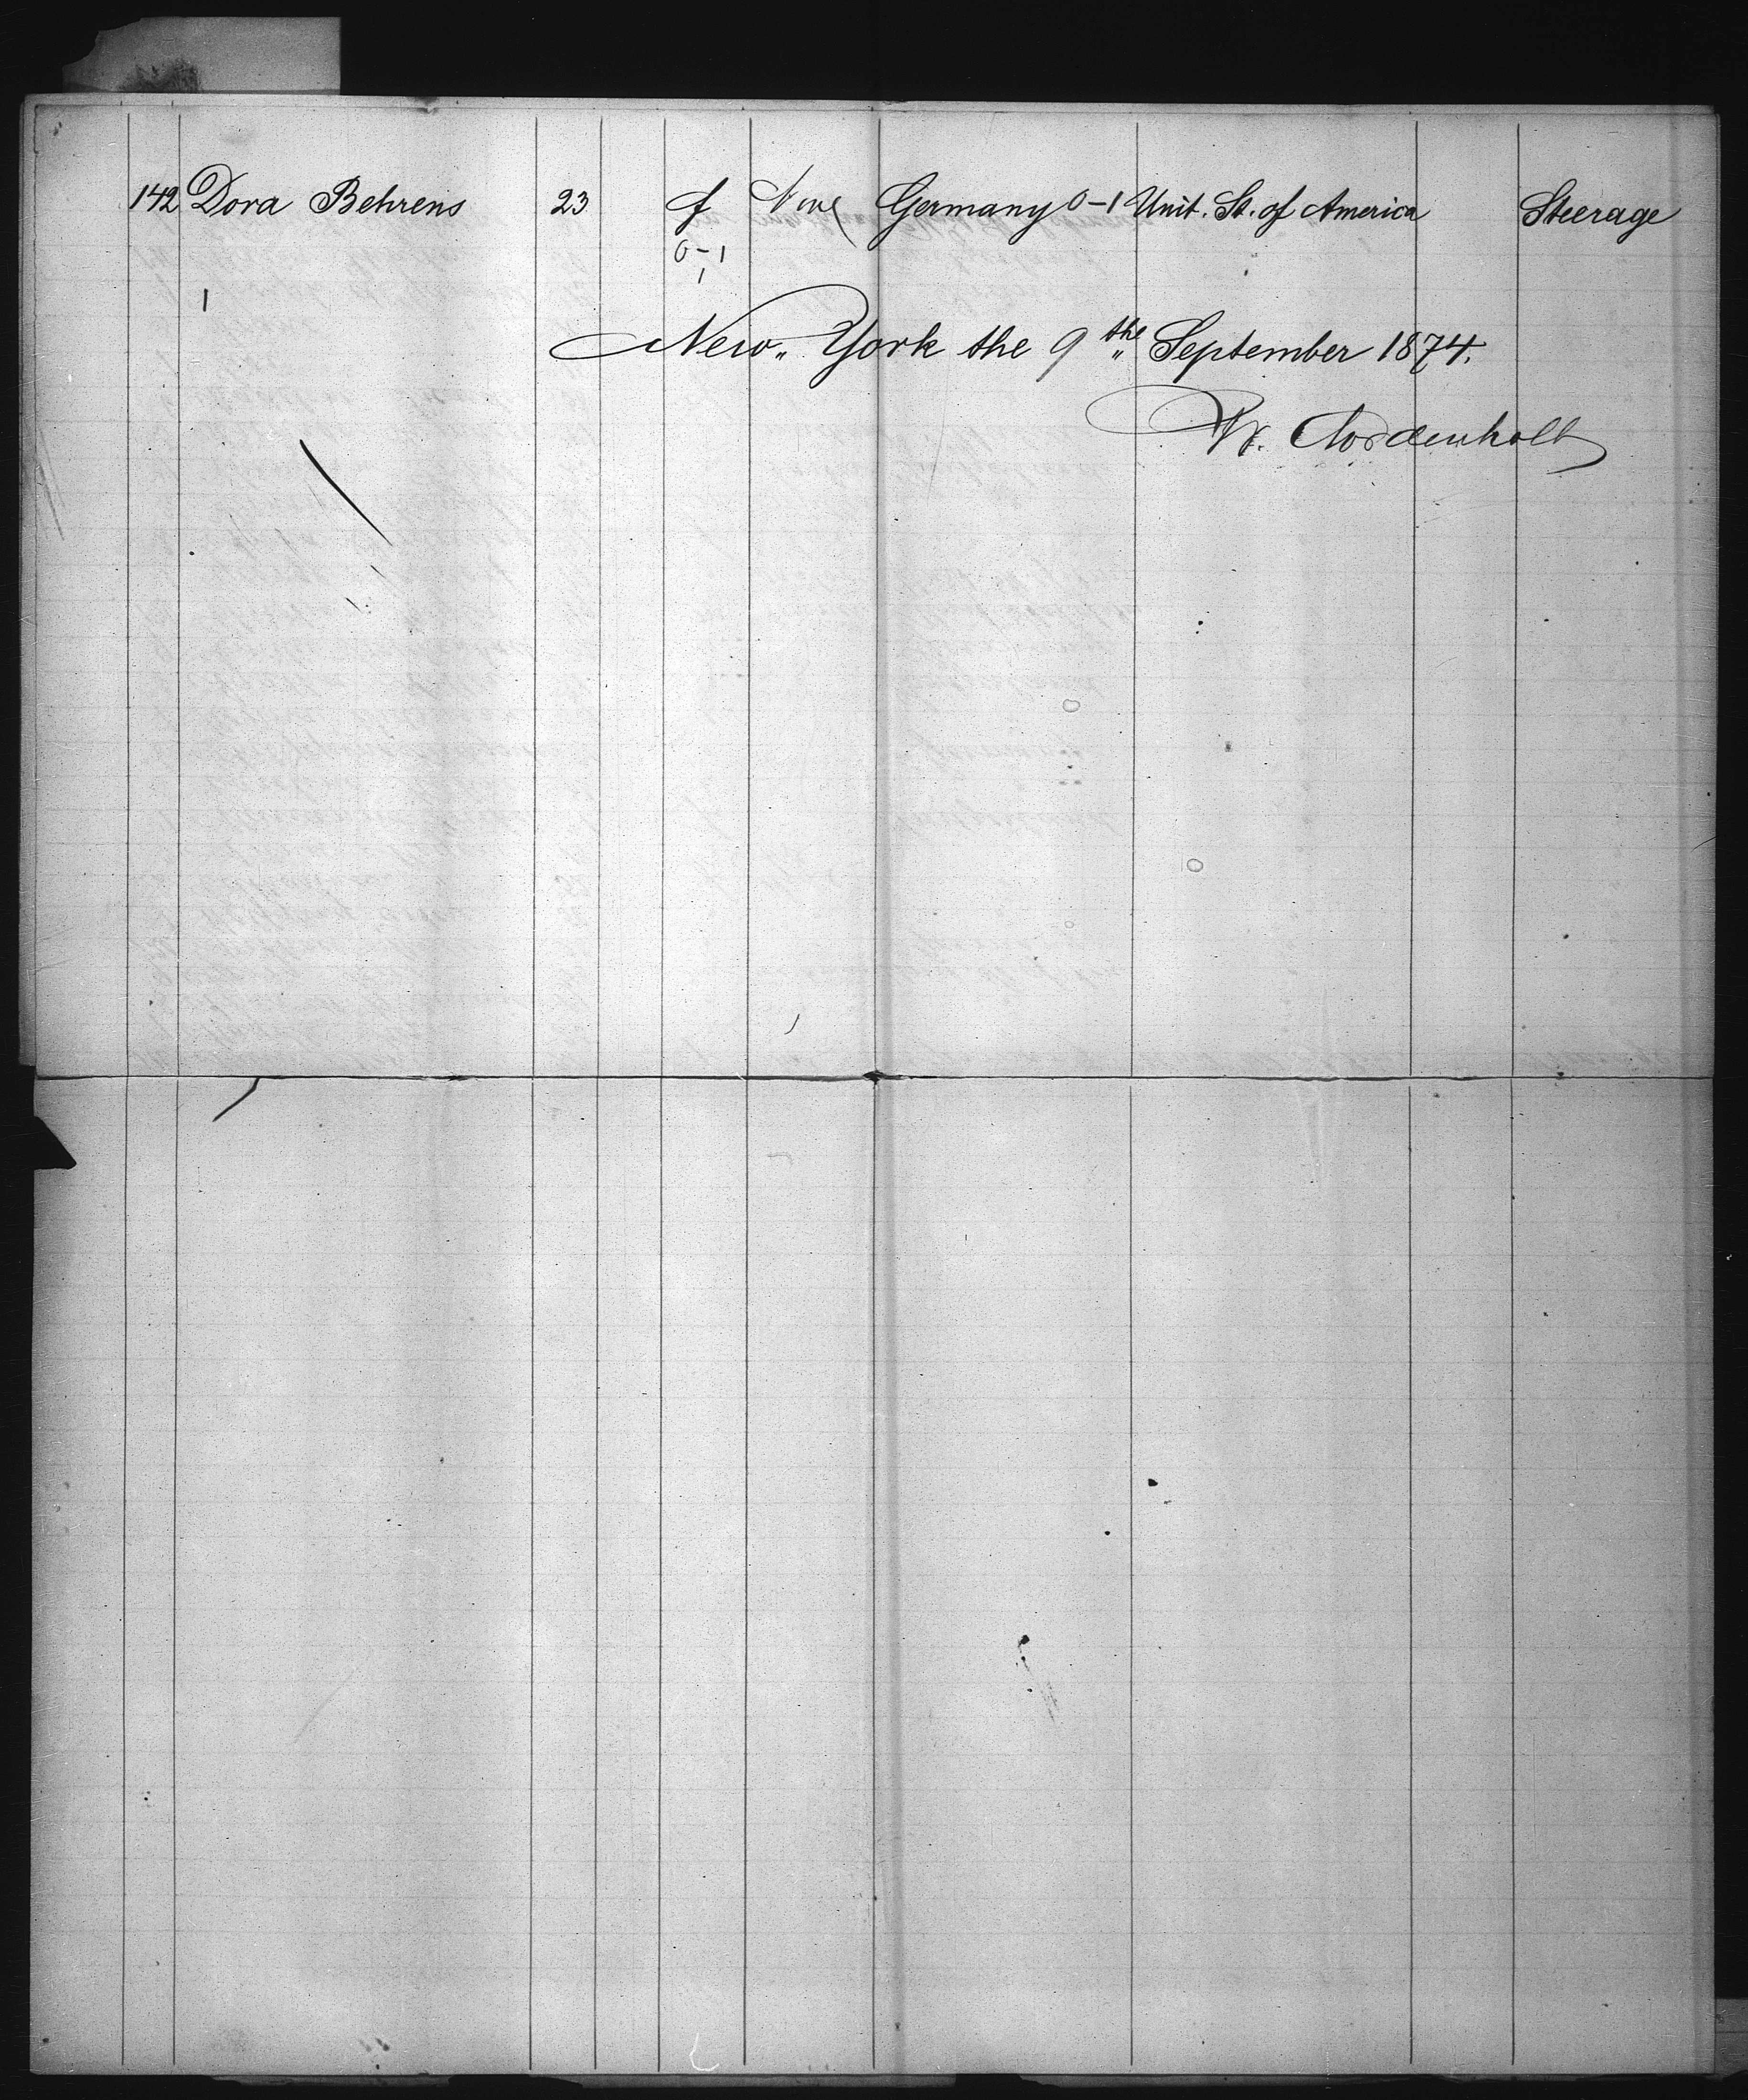 142 Dora Behrens 23 f None Germany 0-1 Unit. St. of America Steerage
0-1
1
1
New-York the 9th September 1874.
W.